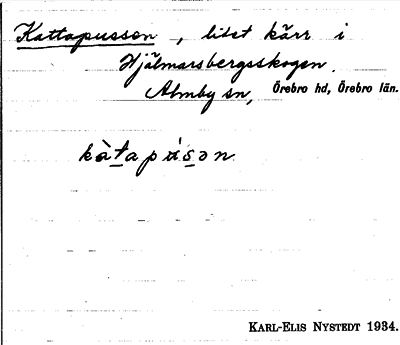 Kattapusson, litet kärr i
Hjälmarsbergsskogen.
Almby sn, Örebro hd, Örebro län.
KARL-ELIS NYSTEDT 1934.